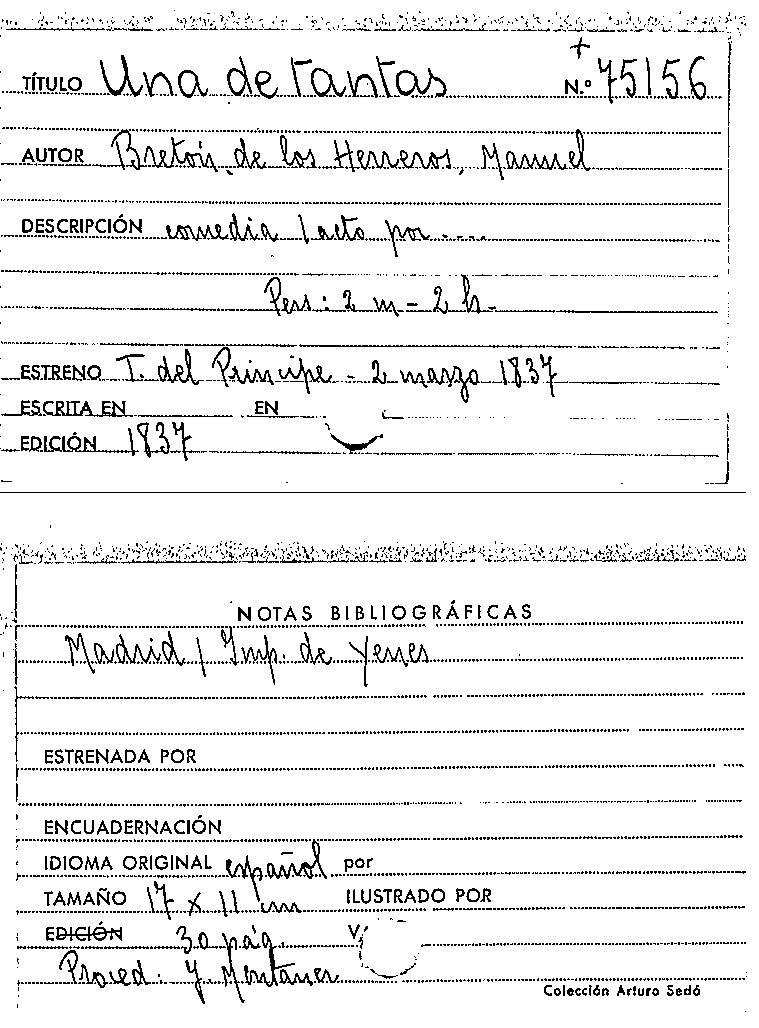 +
TÍTULO Una de tantas N.º 75156
AUTOR Bretón de los Herreros, Manuel
DESCRIPCIÓN comedia 1 acto por....
Pers: 2 m - 2 h.
ESTRENO T. del Principe - 2 marzo 1837
ESCRITA EN EN
EDICIÓN 1837
NOTAS BIBLIOGRÁFICAS
Madrid / Imp. de Yenes
ESTRENADA POR
ENCUADERNACIÓN
IDIOMA ORIGINAL español por
TAMAÑO 17 x 11 cm ILUSTRADO POR
EDICIÓN 30 pág. V
Proced: Y. Montaner
Colección Arturo Sedó